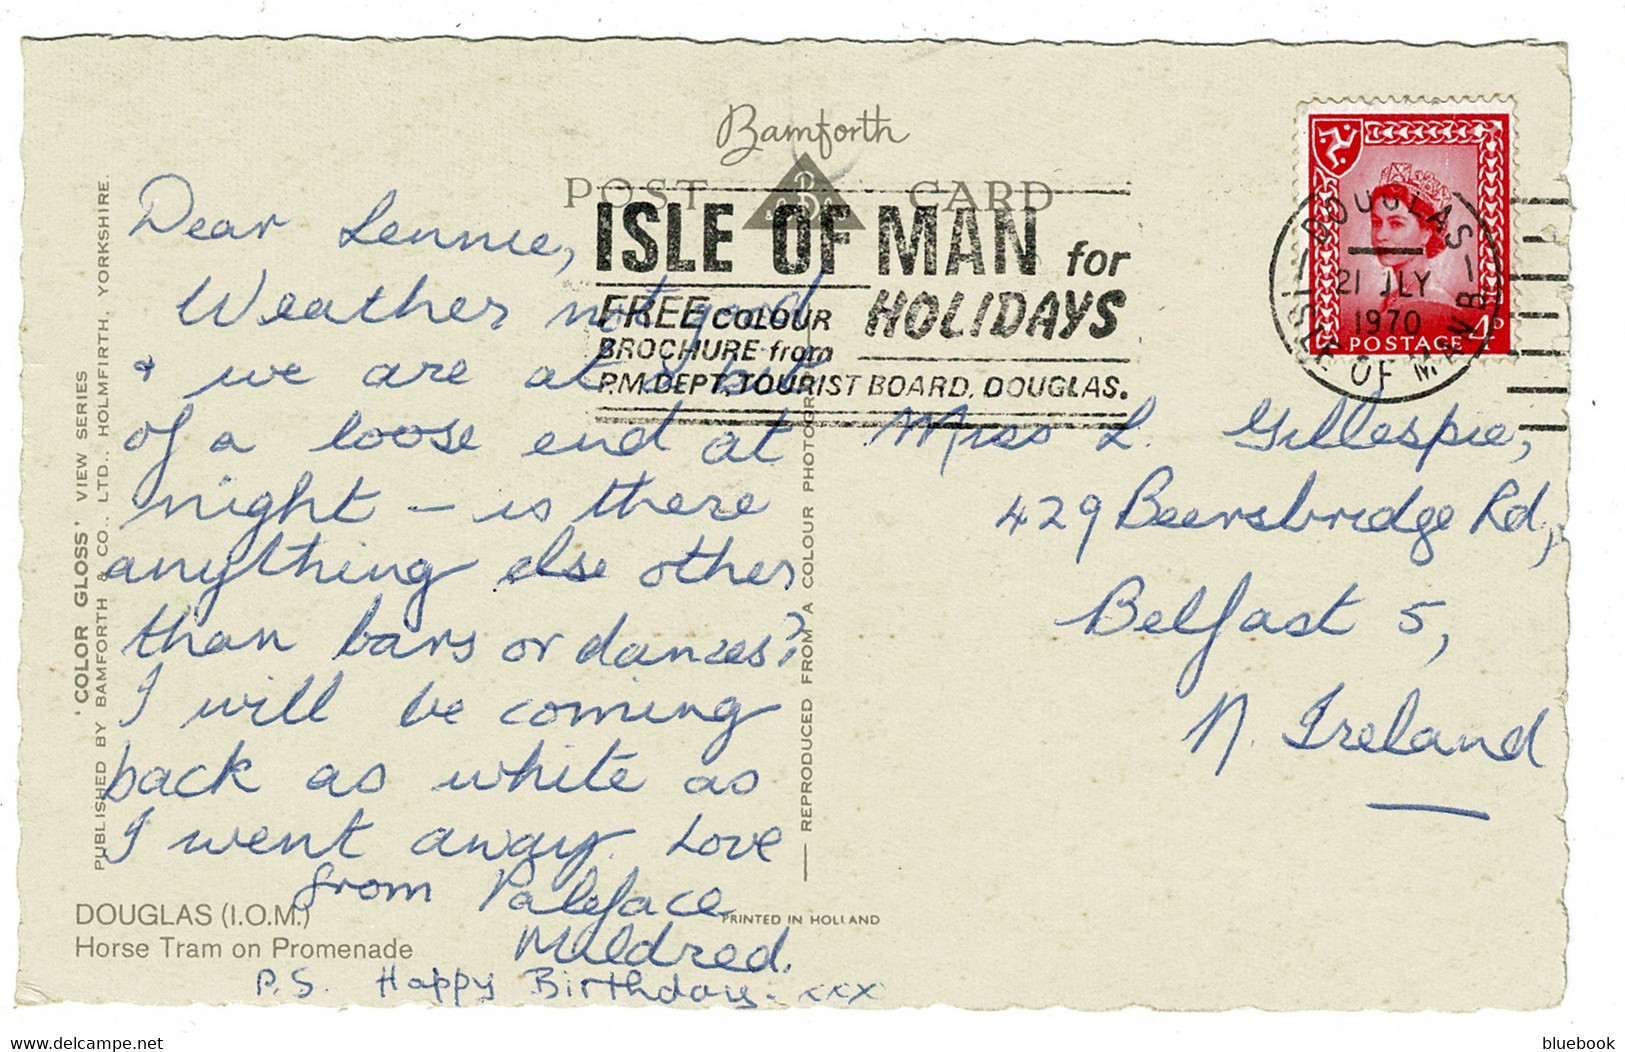 Bamforth
POST CARD
ISLE OF MAN for
HOLIDAYS
FREE COLOUR
BROCHURE from
P.M. DEPT, TOURIST BOARD, DOUGLAS.
DOUGLAS
21 JLY
1970
ISLE OF MAN B
POSTAGE 4D
Dear Lennie,
Weather not good
& we are at a bit
of a loose end at
night – is there
anything else other
than bars or dances?
I will be coming
back as white as
I went away. Love
from Paleface
Mildred.
P.S. Happy Birthday. xxx
Miss L. Gillespie,
429 Beersbridge Rd,
Belfast 5,
N. Ireland
'COLOR GLOSS' VIEW SERIES
PUBLISHED BY BAMFORTH & CO., LTD., HOLMFIRTH, YORKSHIRE.
REPRODUCED FROM A COLOUR PHOTOGRAPH
DOUGLAS (I.O.M.)
Horse Tram on Promenade
PRINTED IN HOLLAND
delcampe.net
bluebook